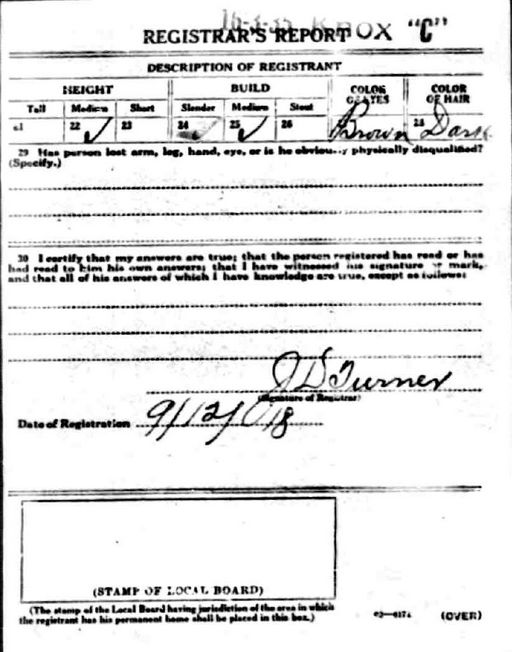 16-3-35 KNOX "C"
REGISTRAR'S REPORT
DESCRIPTION OF REGISTRANT
HEIGHT BUILD COLOR OF EYES COLOR OF HAIR
Tall Medium Short Slender Medium Stout
21 22 ✓ 23 24 25 ✓ 26 Brown 28 Dark
29 Has person lost arm, leg, hand, eye, or is he obviously physically disqualified?
(Specify.)
30 I certify that my answers are true; that the person registered has read or has
had read to him his own answers; that I have witnessed his signature or mark,
and that all of his answers of which I have knowledge are true, except as follows:
J D Turner
(Signature of Registrar)
Date of Registration 9/12/018
(STAMP OF LOCAL BOARD)
(The stamp of the Local Board having jurisdiction of the area in which
the registrant has his permanent home shall be placed in this box.)
03—6171 (OVER)